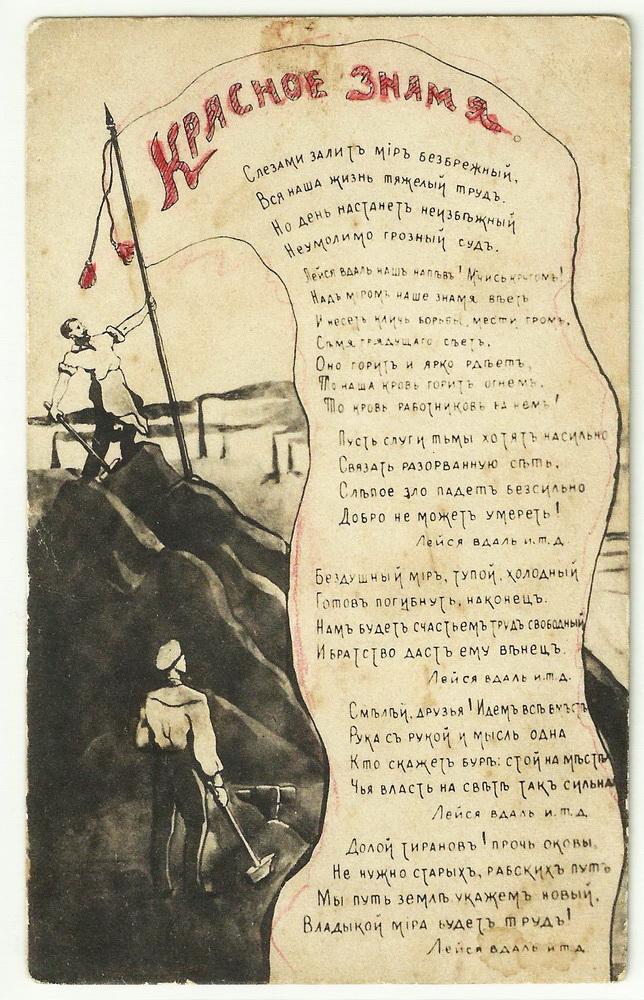 Красное Знамя.
Слезами залитъ мiръ безбрежный,
Вся наша жизнь тяжелый трудъ.
Но день настанетъ неизбѣжный
Неумолимо грозный судъ.
Лейся вдаль нашъ напѣвъ! Мчись кругомъ!
Надъ мiромъ наше знамя вѣетъ
И несетъ кличъ борьбы, мести громъ,
Сѣмя грядущаго сѣетъ,
Оно горитъ и ярко рдѣетъ,
То наша кровь горитъ огнемъ,
То кровь работниковъ на немъ!
Пусть слуги тьмы хотятъ насильно
Связать разорванную сѣть,
Слѣпое зло падетъ безсильно
Добро не можетъ умереть!
Лейся вдаль и.т.д.
Бездушный мiръ, тупой, холодный
Готовъ погибнуть, наконецъ.
Намъ будетъ счастьемъ трудъ свободный
И братство дастъ ему вѣнецъ.
Лейся вдаль и.т.д.
Смѣлѣй, друзья! Идемъ всѣ вмѣстѣ
Рука съ рукой и мысль одна
Кто скажетъ бурѣ: стой на мѣстѣ
Чья власть на свѣтѣ такъ сильна
Лейся вдаль и.т.д
Долой тирановъ! прочь оковы,
Не нужно старыхъ, рабскихъ путъ
Мы путь землѣ укажемъ новый,
Владыкой мiра будетъ трудъ!
Лейся вдаль и т.д